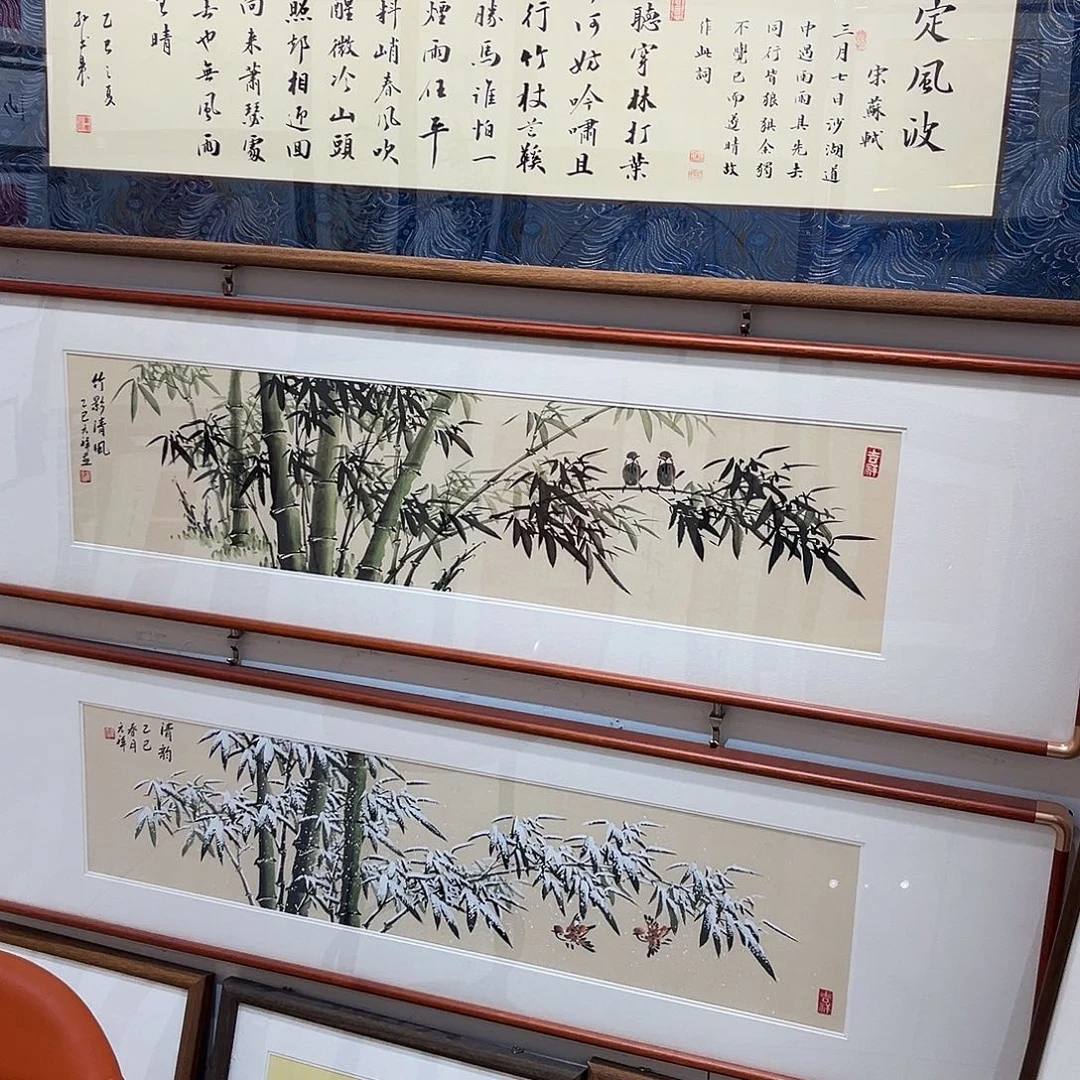 定風波
宋蘇軾
三月七日沙湖道
中遇雨雨具先去
同行皆狼狽余獨
不覺已而遂晴故
作此詞
聽穿林打葉
何妨吟嘯且
行竹杖芒鞵
勝馬誰怕一
煙雨任平
料峭春風吹
醒微冷山頭
照卻相迎回
向來蕭瑟處
去也無風雨
晴
乙巳之夏
竹影清風
乙巳元祥画
吉祥
清韵
乙巳
春月
元祥
吉祥